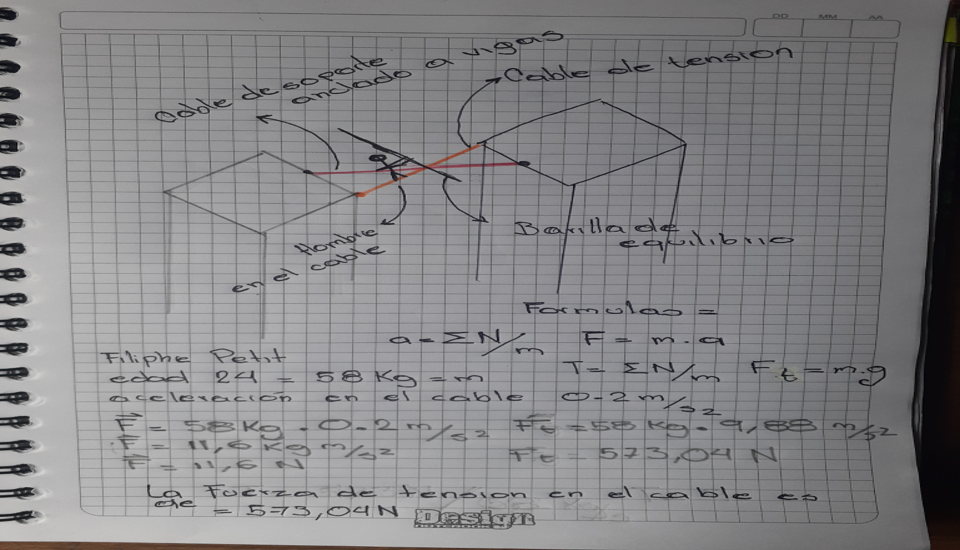 DD MM AA
Cable de soporte
anclado a vigas
Cable de tension
Hombre
en el cable
Barilla de
equilibrio
Formulas =
a = ΣN/m F = m . a
Filiphe Petit
edad 24 = 58 Kg = m
T = ΣN/m Ft = m.g
aceleración en el cable 0-2 m/s2
F = 58 Kg . 0-2 m/s2
Ft = 58 Kg . 9,88 m/s2
F = 11,6 Kg m/s2
Ft = 573,04 N
F = 11,6 N
La Fuerza de tension en el cable es
de = 573,04 N
Design